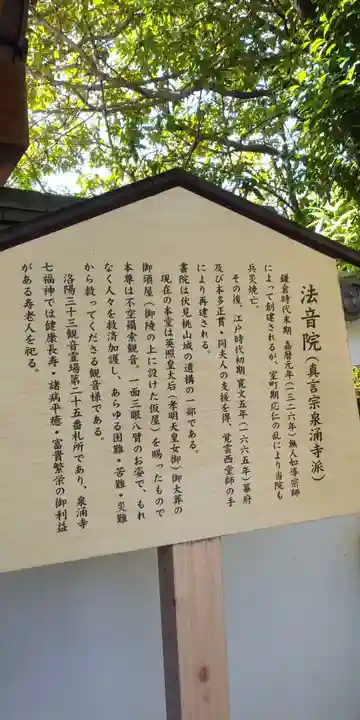 法音院(真言宗泉涌寺派)
鎌倉時代末期 嘉暦元年(一三二六年)無人如導宗師
によって創建されるが、室町期応仁の乱により当院も
兵災焼亡。
その後、江戸時代初期 寛文五年(一六六五年)幕府
及び本多正貫・同夫人の支援を得、覚雲西堂師の手
により再建される。
書院は伏見桃山城の遺構の一部である。
現在の本堂は英照皇太后(孝明天皇女御)御大葬の
御須屋(御陵の上に設けた仮屋)を賜ったもので
本尊は不空羂索観音、一面三眼八臂のお姿で、もれ
なく人々を救済加護し、あらゆる困難・苦難・災難
から救ってくださる観音様である。
洛陽三十三観音霊場第二十五番札所であり、泉涌寺
七福神では健康長寿・諸病平癒・富貴繁栄の御利益
がある寿老人を祀る。